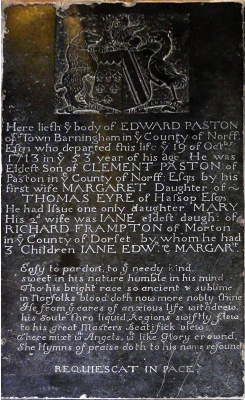 Here lieth ẏ body of EDWARD PASTON
of Town Barningham in ẏ County of Norff
Esqs who departed this life ẏ 19 of Octr
1713 in ẏ 53 year of his age. He was
Eldest Son of CLEMENT PASTON of
Paston in ẏ County of Norff: Esqs by his
first wife MARGARET Daughter of ~
THOMAS EYRE of Hassop Esqr
He had Issue one only daughter MARY
His 2d wife was IANE eldest daught: of
RICHARD FRAMPTON of Morton
in ẏ County of Dorset by whom he had
3 Children IANE EDWd & MARGARt
Easy to pardon, to ẏ needy kind,
sweet in his nature humble in his mind
Tho his bright race so ancient & sublime
in Norfolks blood doth now more nobly shine
He from ẏ cares of anxious life withdrew,
his Soule thro liquid Regions swiftly flew
to his great Masters Beatifick view
There mixt wth Angels, in like Glory crownd,
She Hymns of praise doth to his name resound
REQUIESCAT IN PACE